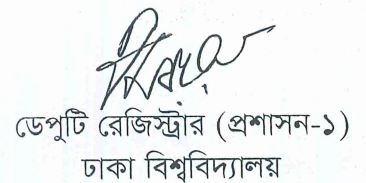 ডেপুটি রেজিস্ট্রার (প্রশাসন-১)
ঢাকা বিশ্ববিদ্যালয়